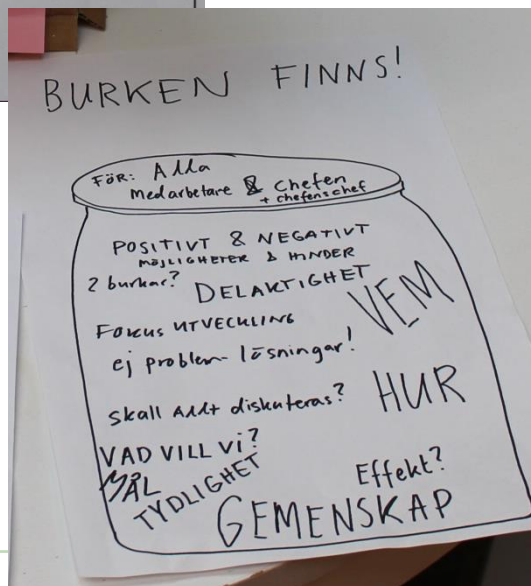 BURKEN FINNS!
FÖR: Alla
medarbetare & chefen
+ chefenschef
POSITIVT & NEGATIVT
MÖJLIGHETER & HINDER
2 burkar?
DELAKTIGHET
VEM
FOKUS UTVECKLING
ej problem lösningar!
HUR
skall Allt diskuteras?
VAD VILL Vi?
MÅL
TYDLIGHET
Effekt?
GEMENSKAP